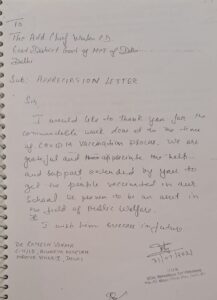 To
The Add Chief Warden CD
East District Govt of NCT of Delhi
Delhi
Sub: APPRECIASION LETTER
Sir,
I would like to thank you for the
commendable work done at to the time
of COVID19 Vaccination process. We are
grateful and appreciate the help
and support extended by your to
get the people vaccinated in our
School be proven to be an asset in
the field of Public Welfare.
I wish them success in future
DR RAMESH VERMA
DELHI